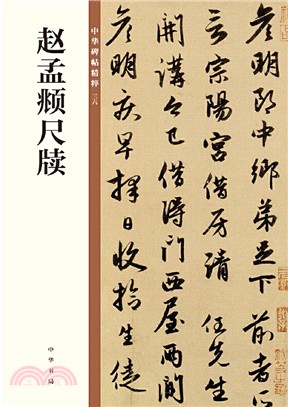 赵孟𫖯尺牍
中华碑帖精粹
彦明郎中鄉弟足下前者
云宗陽宮借房請任先生
開講今已借得門西屋兩間
彦明疾早擇日收拾生徒
中华书局